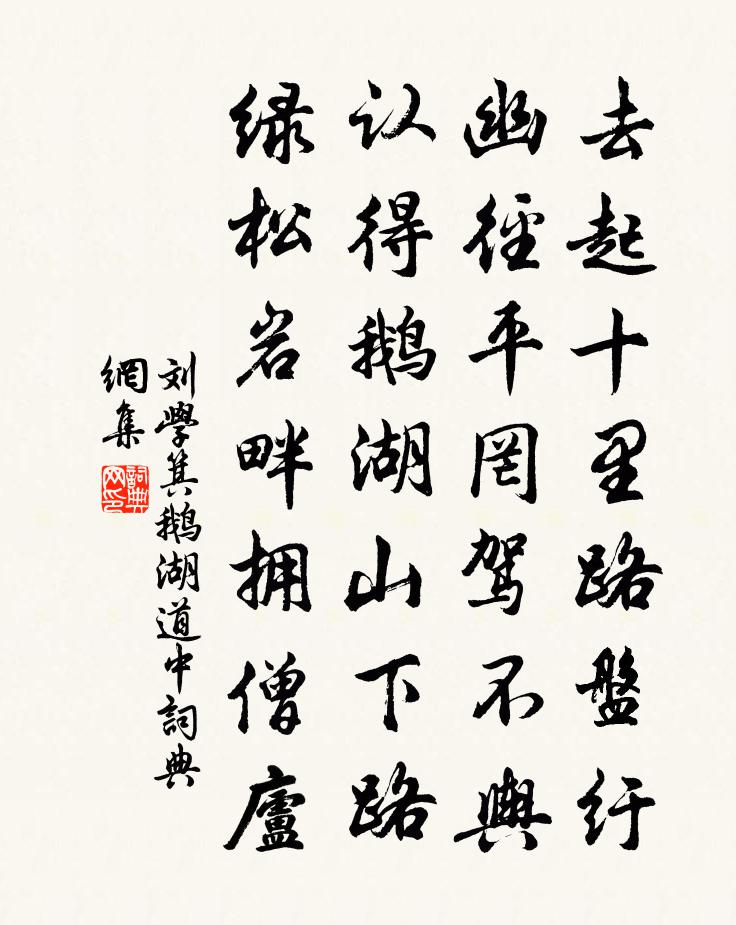 去起十里路盤纡
幽徑平罔駕不輿
认得鹅湖山下路
绿松岩畔拥僧廬
刘學箕鹅湖道中詞典
網集
詞典
网印